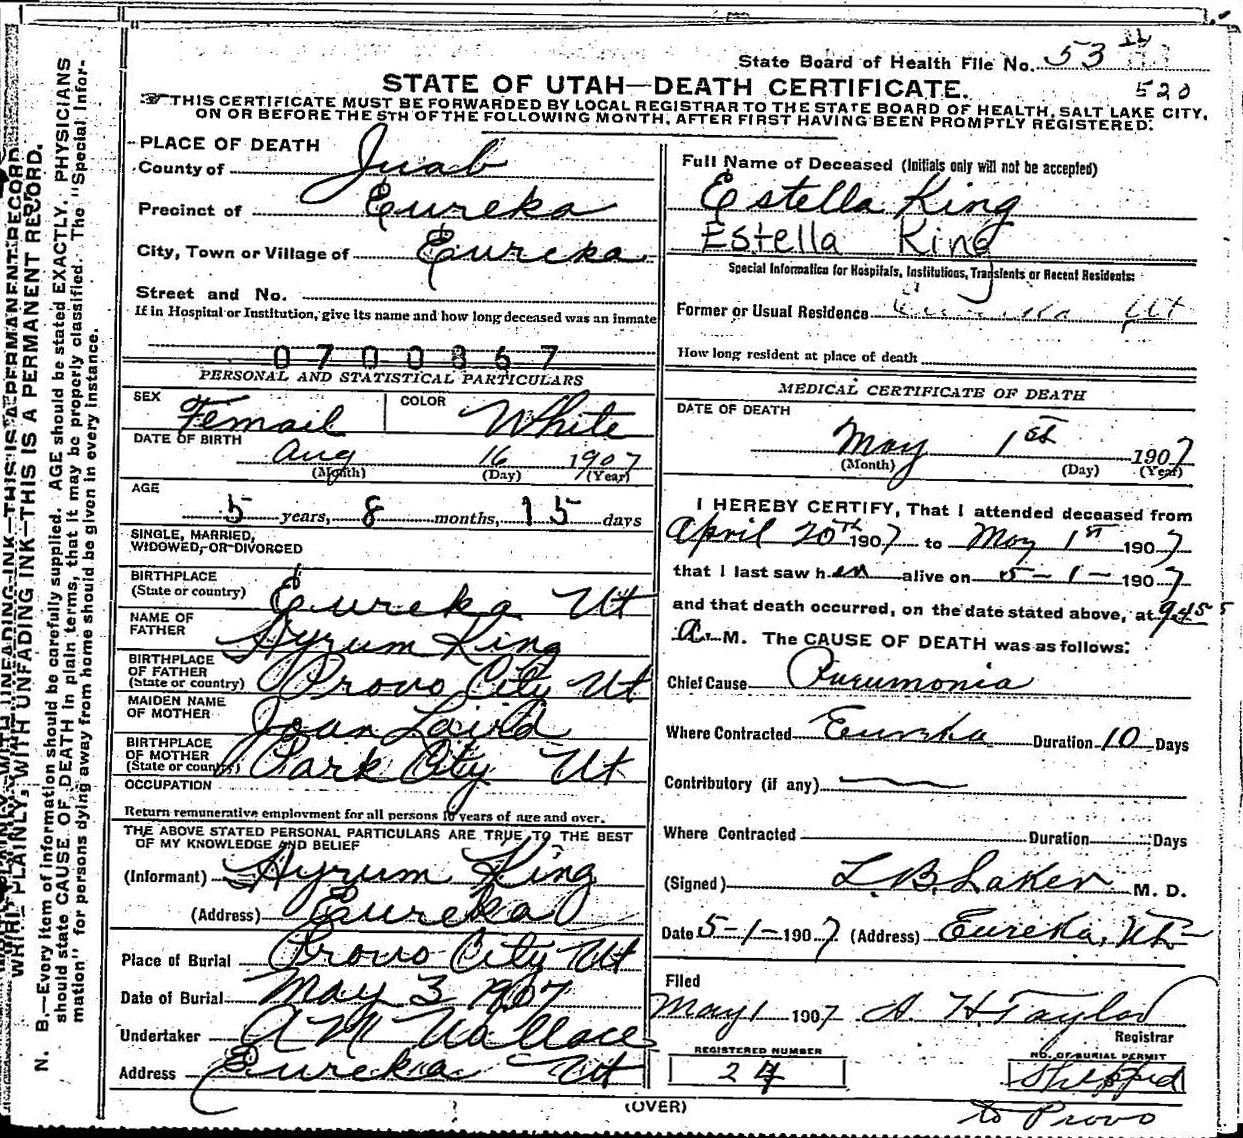 State Board of Health File No. 53
520
STATE OF UTAH—DEATH CERTIFICATE.
THIS CERTIFICATE MUST BE FORWARDED BY LOCAL REGISTRAR TO THE STATE BOARD OF HEALTH, SALT LAKE CITY,
ON OR BEFORE THE 5TH OF THE FOLLOWING MONTH, AFTER FIRST HAVING BEEN PROMPTLY REGISTERED.
PLACE OF DEATH
County of Juab
Precinct of Eureka
City, Town or Village of Eureka
Street and No.
If in Hospital or Institution, give its name and how long deceased was an inmate
0700367
PERSONAL AND STATISTICAL PARTICULARS
SEX Femail COLOR White
DATE OF BIRTH
Aug 16 1907
(Month) (Day) (Year)
AGE
5 years, 8 months, 15 days
SINGLE, MARRIED,
WIDOWED, OR DIVORCED
BIRTHPLACE
(State or country) Eureka Ut
NAME OF
FATHER Hyrum King
BIRTHPLACE
OF FATHER
(State or country) Provo City Ut
MAIDEN NAME
OF MOTHER Joan Laird
BIRTHPLACE
OF MOTHER
(State or country) Park City Ut
OCCUPATION
Return remunerative employment for all persons 10 years of age and over.
THE ABOVE STATED PERSONAL PARTICULARS ARE TRUE TO THE BEST
OF MY KNOWLEDGE AND BELIEF
(Informant) Hyrum King
(Address) Eureka
Place of Burial Provo City Ut
Date of Burial May 3 1907
Undertaker A M Wallace
Address Eureka Ut
Full Name of Deceased (Initials only will not be accepted)
Estella King
Estella King
Special Information for Hospitals, Institutions, Transients or Recent Residents:
Former or Usual Residence Eureka Ut
How long resident at place of death
MEDICAL CERTIFICATE OF DEATH
DATE OF DEATH
May 1st 1907
(Month) (Day) (Year)
I HEREBY CERTIFY, That I attended deceased from
April 20th 1907 to May 1st 1907
that I last saw her alive on 5-1-1907
and that death occurred, on the date stated above, at 9.45
A. M. The CAUSE OF DEATH was as follows:
Chief Cause Pneumonia
Where Contracted Eureka Duration 10 Days
Contributory (if any)
Where Contracted Duration Days
(Signed) L. B. Laker M. D.
Date 5-1-1907 (Address) Eureka, Ut
Filed
May 1 1907 A. H Taylor
Registrar
REGISTERED NUMBER
24
NO. OF BURIAL PERMIT
Shipped
to Provo
(OVER)
WRITE PLAINLY, WITH UNFADING INK—THIS IS A PERMANENT RECORD.
N. B.—Every item of information should be carefully supplied. AGE should be stated EXACTLY. PHYSICIANS
should state CAUSE OF DEATH in plain terms, that it may be properly classified. The "Special Infor-
mation" for persons dying away from home should be given in every instance.